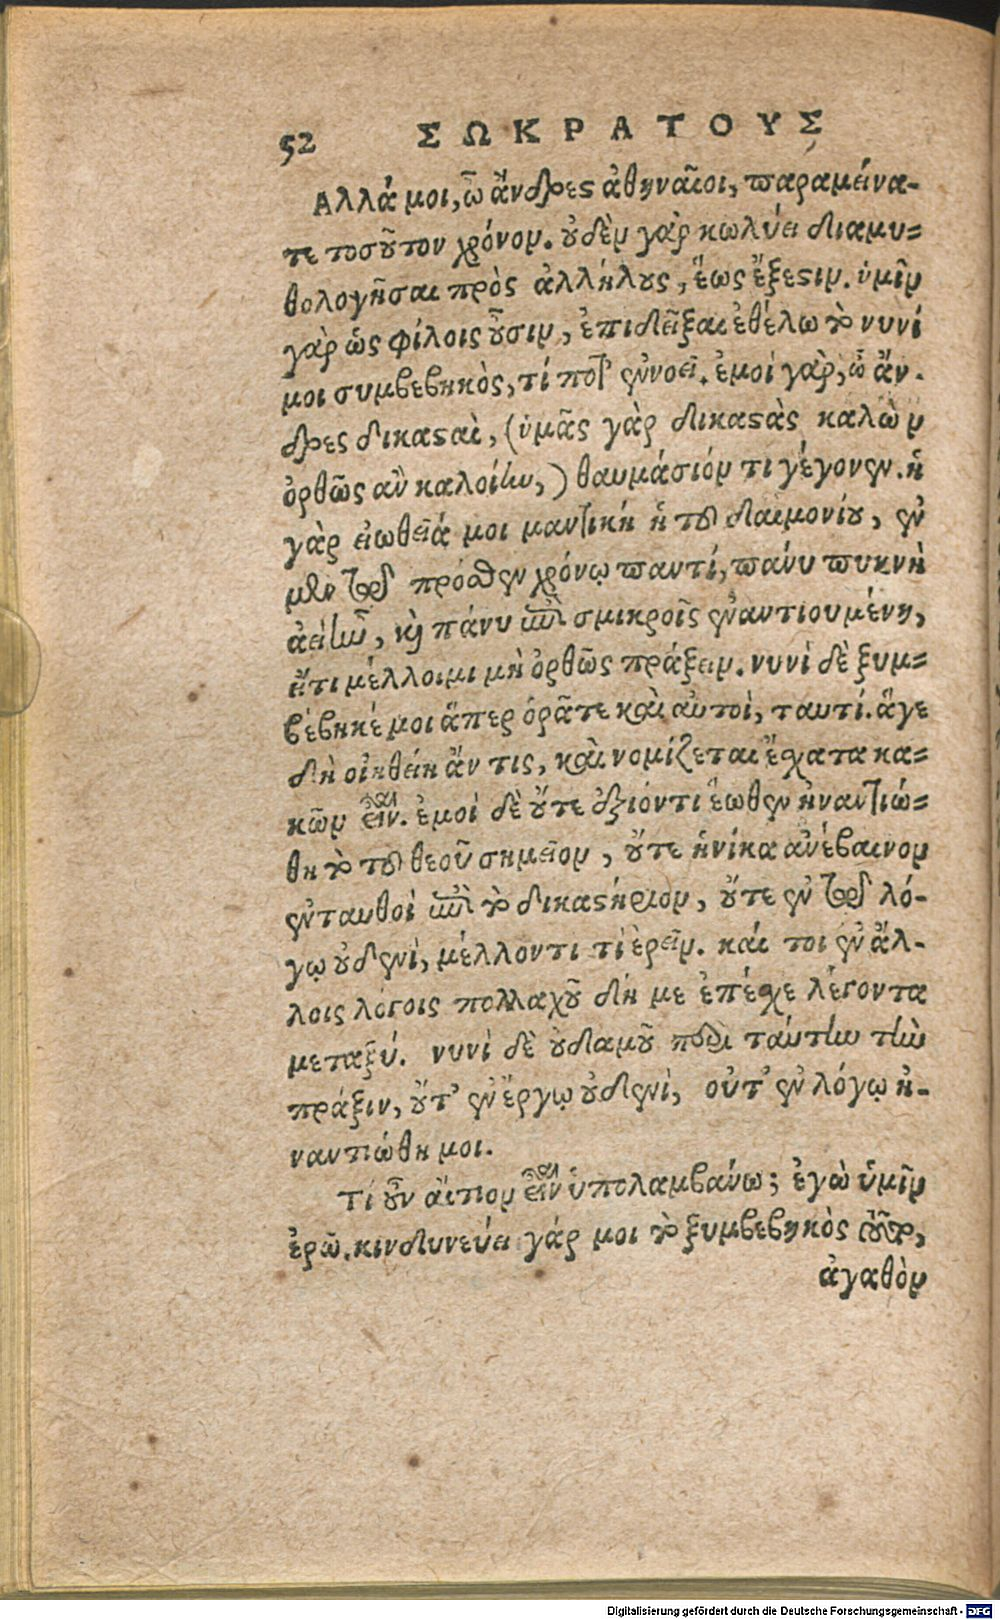 52 ΣΩΚΡΑΤΟΥΣ
Αλλά μοι, ὦ ἄνδρες ἀθηναῖοι, παραμείνα-
τε τοσοῦτον χρόνον. οὐδὲν γὰρ κωλύει διαμυ=
θολογῆσαι πρὸς ἀλλήλους, ἕως ἔξεστιν. ὑμῖν
γὰρ ὡς φίλοις οὖσιν, ἐπιδεῖξαι ἐθέλω τὸ νυνί
μοι συμβεβηκὸς, τί ποτ' ἐννοεῖ. ἐμοὶ γὰρ, ὦ ἄν-
δρες δικασταὶ, (ὑμᾶς γὰρ δικαστὰς καλῶν
ὀρθῶς ἂν καλοίην,) θαυμάσιόν τι γέγονεν. ἡ
γὰρ εἰωθεῖά μοι μαντικὴ ἡ τοῦ δαιμονίου, ἐν
μὲν τῷ πρόσθεν χρόνῳ παντί, πάνυ πυκνὴ
ἀεὶ ἦν, καὶ πάνυ ἐπὶ σμικροῖς ἐναντιουμένη,
εἴ τι μέλλοιμι μὴ ὀρθῶς πράξειν. νυνὶ δὲ ξυμ=
βέβηκέ μοι ἅπερ ὁρᾶτε καὶ αὐτοὶ, ταυτί. ἅγε
δὴ οἰηθείη ἄν τις, καὶ νομίζεται ἔσχατα κα=
κῶν εἶναι. ἐμοὶ δὲ οὔτε ἐξιόντι ἕωθεν ἠναντιώ=
θη τὸ τοῦ θεοῦ σημεῖον, οὔτε ἡνίκα ἀνέβαινον
ἐνταυθοῖ ἐπὶ τὸ δικαστήριον, οὔτε ἐν τῷ λό-
γῳ οὐδενὶ, μέλλοντι τὶ ἐρεῖν. καί τοι ἐν ἄλ-
λοις λόγοις πολλαχοῦ δή με ἐπέσχε λέγοντα
μεταξύ. νυνὶ δὲ οὐδαμοῦ περὶ ταύτην τὴν
πράξιν, οὔτ' ἐν ἔργῳ οὐδενὶ, οὔτ' ἐν λόγῳ ἠ-
ναντιώθη μοι.
Τί οὖν αἴτιον εἶναι ὑπολαμβάνω; ἐγὼ ὑμῖν
ἐρῶ. κινδυνεύει γάρ μοι τὸ ξυμβεβηκὸς τοῦτο,
ἀγαθὸν
Digitalisierung gefördert durch die Deutsche Forschungsgemeinschaft - DFG